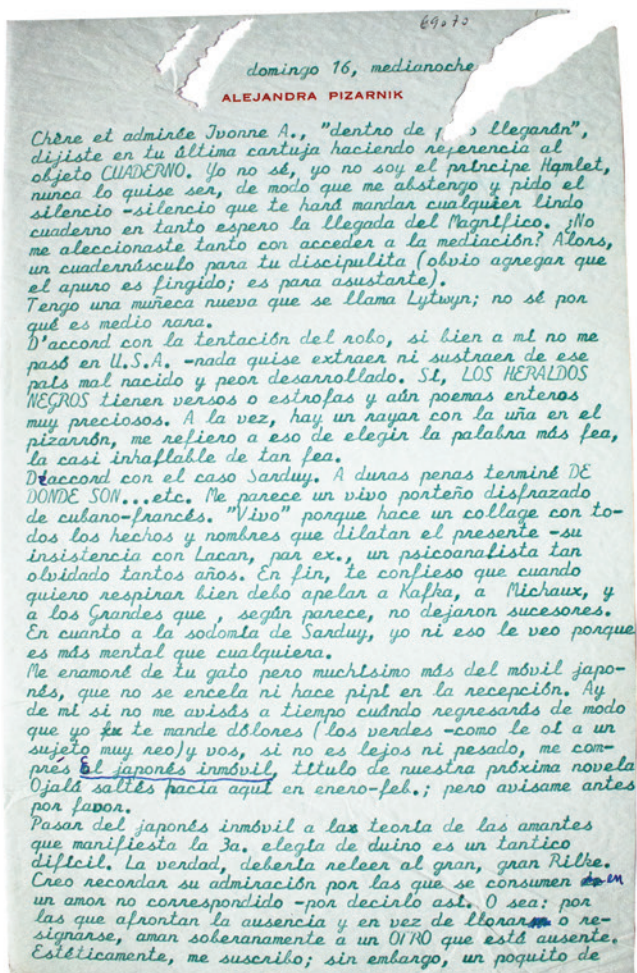 69-70
domingo 16, medianoche
ALEJANDRA PIZARNIK
Chère et admirée Ivonne A., "dentro de llegarán",
dijiste en tu última cartuja haciendo referencia al
objeto CUADERNO. Yo no sé, yo no soy el príncipe Hamlet,
nunca lo quise ser, de modo que me abstengo y pido el
silencio -silencio que te hará mandar cualquier lindo
cuaderno en tanto espero la llegada del Magnífico. ¿No
me aleccionaste tanto con acceder a la mediación? Alors,
un cuadernúsculo para tu discipulita (obvio agregar que
el apuro es fingido; es para asustarte).
Tengo una muñeca nueva que se llama Lytwyn; no sé por
qué es medio rara.
D'accord con la tentación del robo, si bien a mí no me
pasó en U.S.A. -nada quise extraer ni sustraer de ese
país mal nacido y peor desarrollado. Sí, LOS HERALDOS
NEGROS tienen versos o estrofas y aún poemas enteros
muy preciosos. A la vez, hay un rayar con la uña en el
pizarrón, me refiero a eso de elegir la palabra más fea,
la casi inhaflable de tan fea.
D'accord con el caso Sarduy. A duras penas terminé DE
DONDE SON...etc. Me parece un vivo porteño disfrazado
de cubano-francés. "Vivo" porque hace un collage con to-
dos los hechos y nombres que dilatan el presente -su
insistencia con Lacan, par ex., un psicoanalista tan
olvidado tantos años. En fin, te confieso que cuando
quiero respirar bien debo apelar a Kafka, a Michaux, y
a los Grandes que , según parece, no dejaron sucesores.
En cuanto a la sodomía de Sarduy, yo ni eso le veo porque
es más mental que cualquiera.
Me enamoré de tu gato pero muchísimo más del móvil japo-
nés, que no se encela ni hace pipí en la recepción. Ay
de mí si no me avisás a tiempo cuándo regresarás de modo
que yo te mande dólores (los verdes -como le oí a un
sujeto muy reo)y vos, si no es lejos ni pesado, me com-
prés El japonés inmóvil, título de nuestra próxima novela
Ojalá saltés hacia aquí en enero-feb.; pero avisame antes
por favor.
Pasar del japonés inmóvil a la teoría de las amantes
que manifiesta la 3a. elegía de duino es un tantico
difícil. La verdad, debería releer al gran, gran Rilke.
Creo recordar su admiración por las que se consumen en
un amor no correspondido -por decirlo así. O sea: por
las que afrontan la ausencia y en vez de llorar o re-
signarse, aman soberanamente a un OTRO que está ausente.
Estéticamente, me suscribo; sin embargo, un poquito de